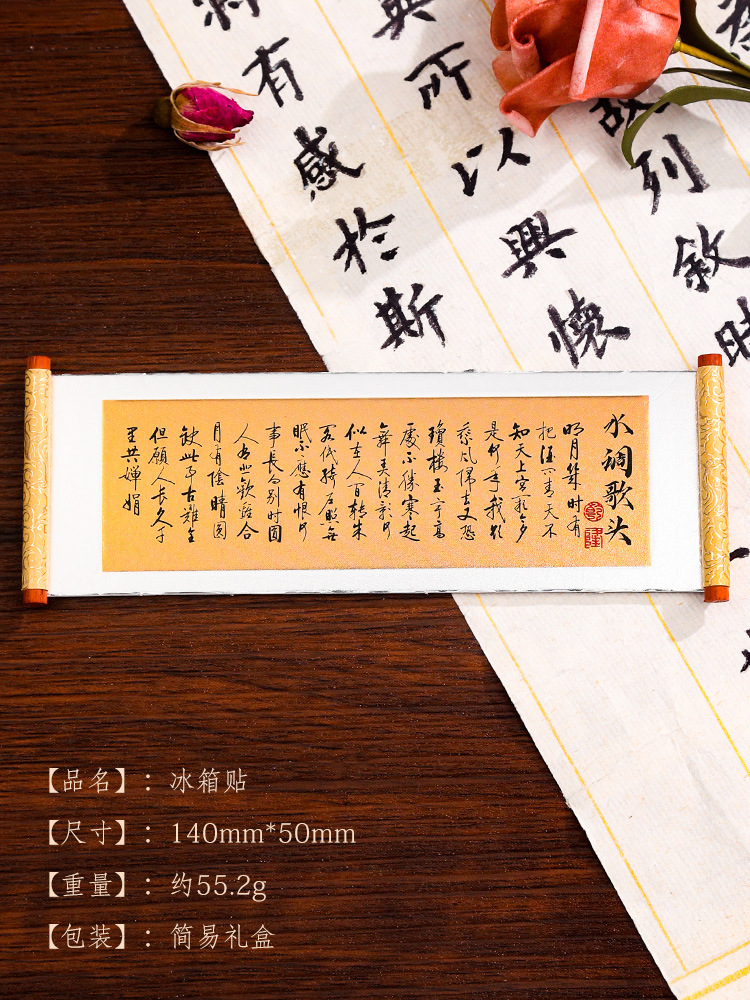 故列敘時
所以興懷
有感於斯
水調歌头
明月幾时有
把酒问青天不
知天上宫阙今夕
是何年我欲
乘风归去又恐
瓊楼玉宇高
處不勝寒起
舞弄清影何
似在人间转朱
阁低绮户照無
眠不應有恨何
事長向别时圆
人有悲歡離合
月有陰晴圆
缺此事古難全
但願人长久千
里共嬋娟
【品名】：冰箱贴
【尺寸】：140mm*50mm
【重量】：约55.2g
【包装】：简易礼盒